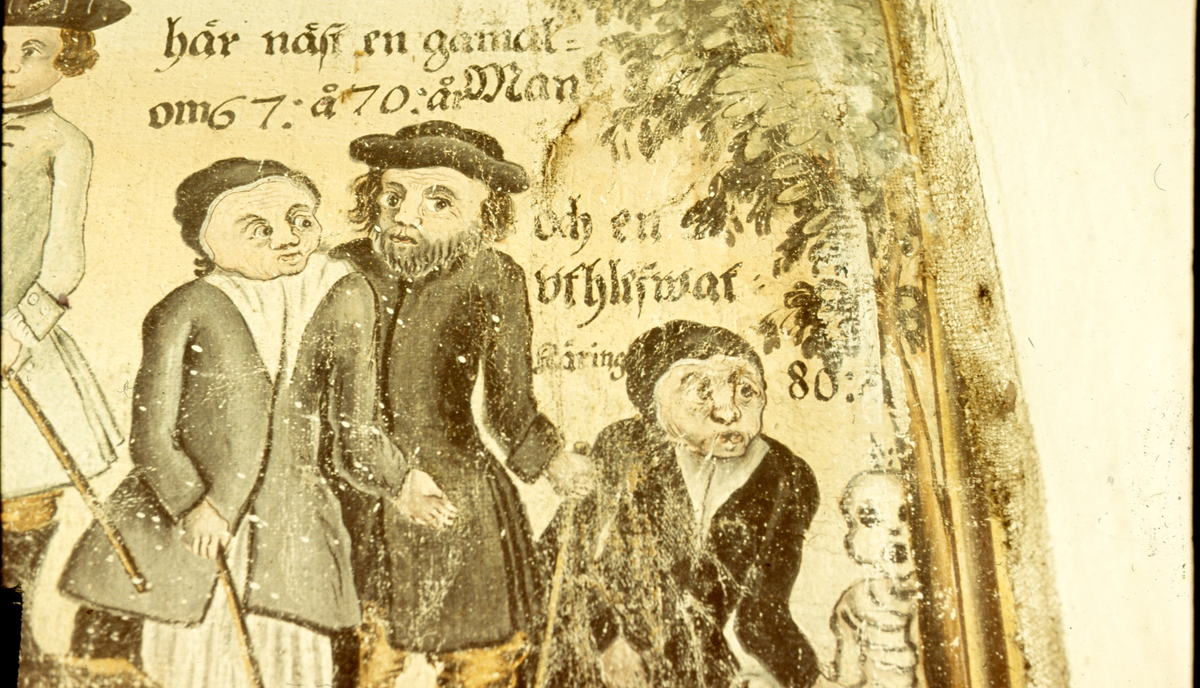 här näst en gamal=
om 67: å 70: år Man
och en
uthleswat
Käring
80: